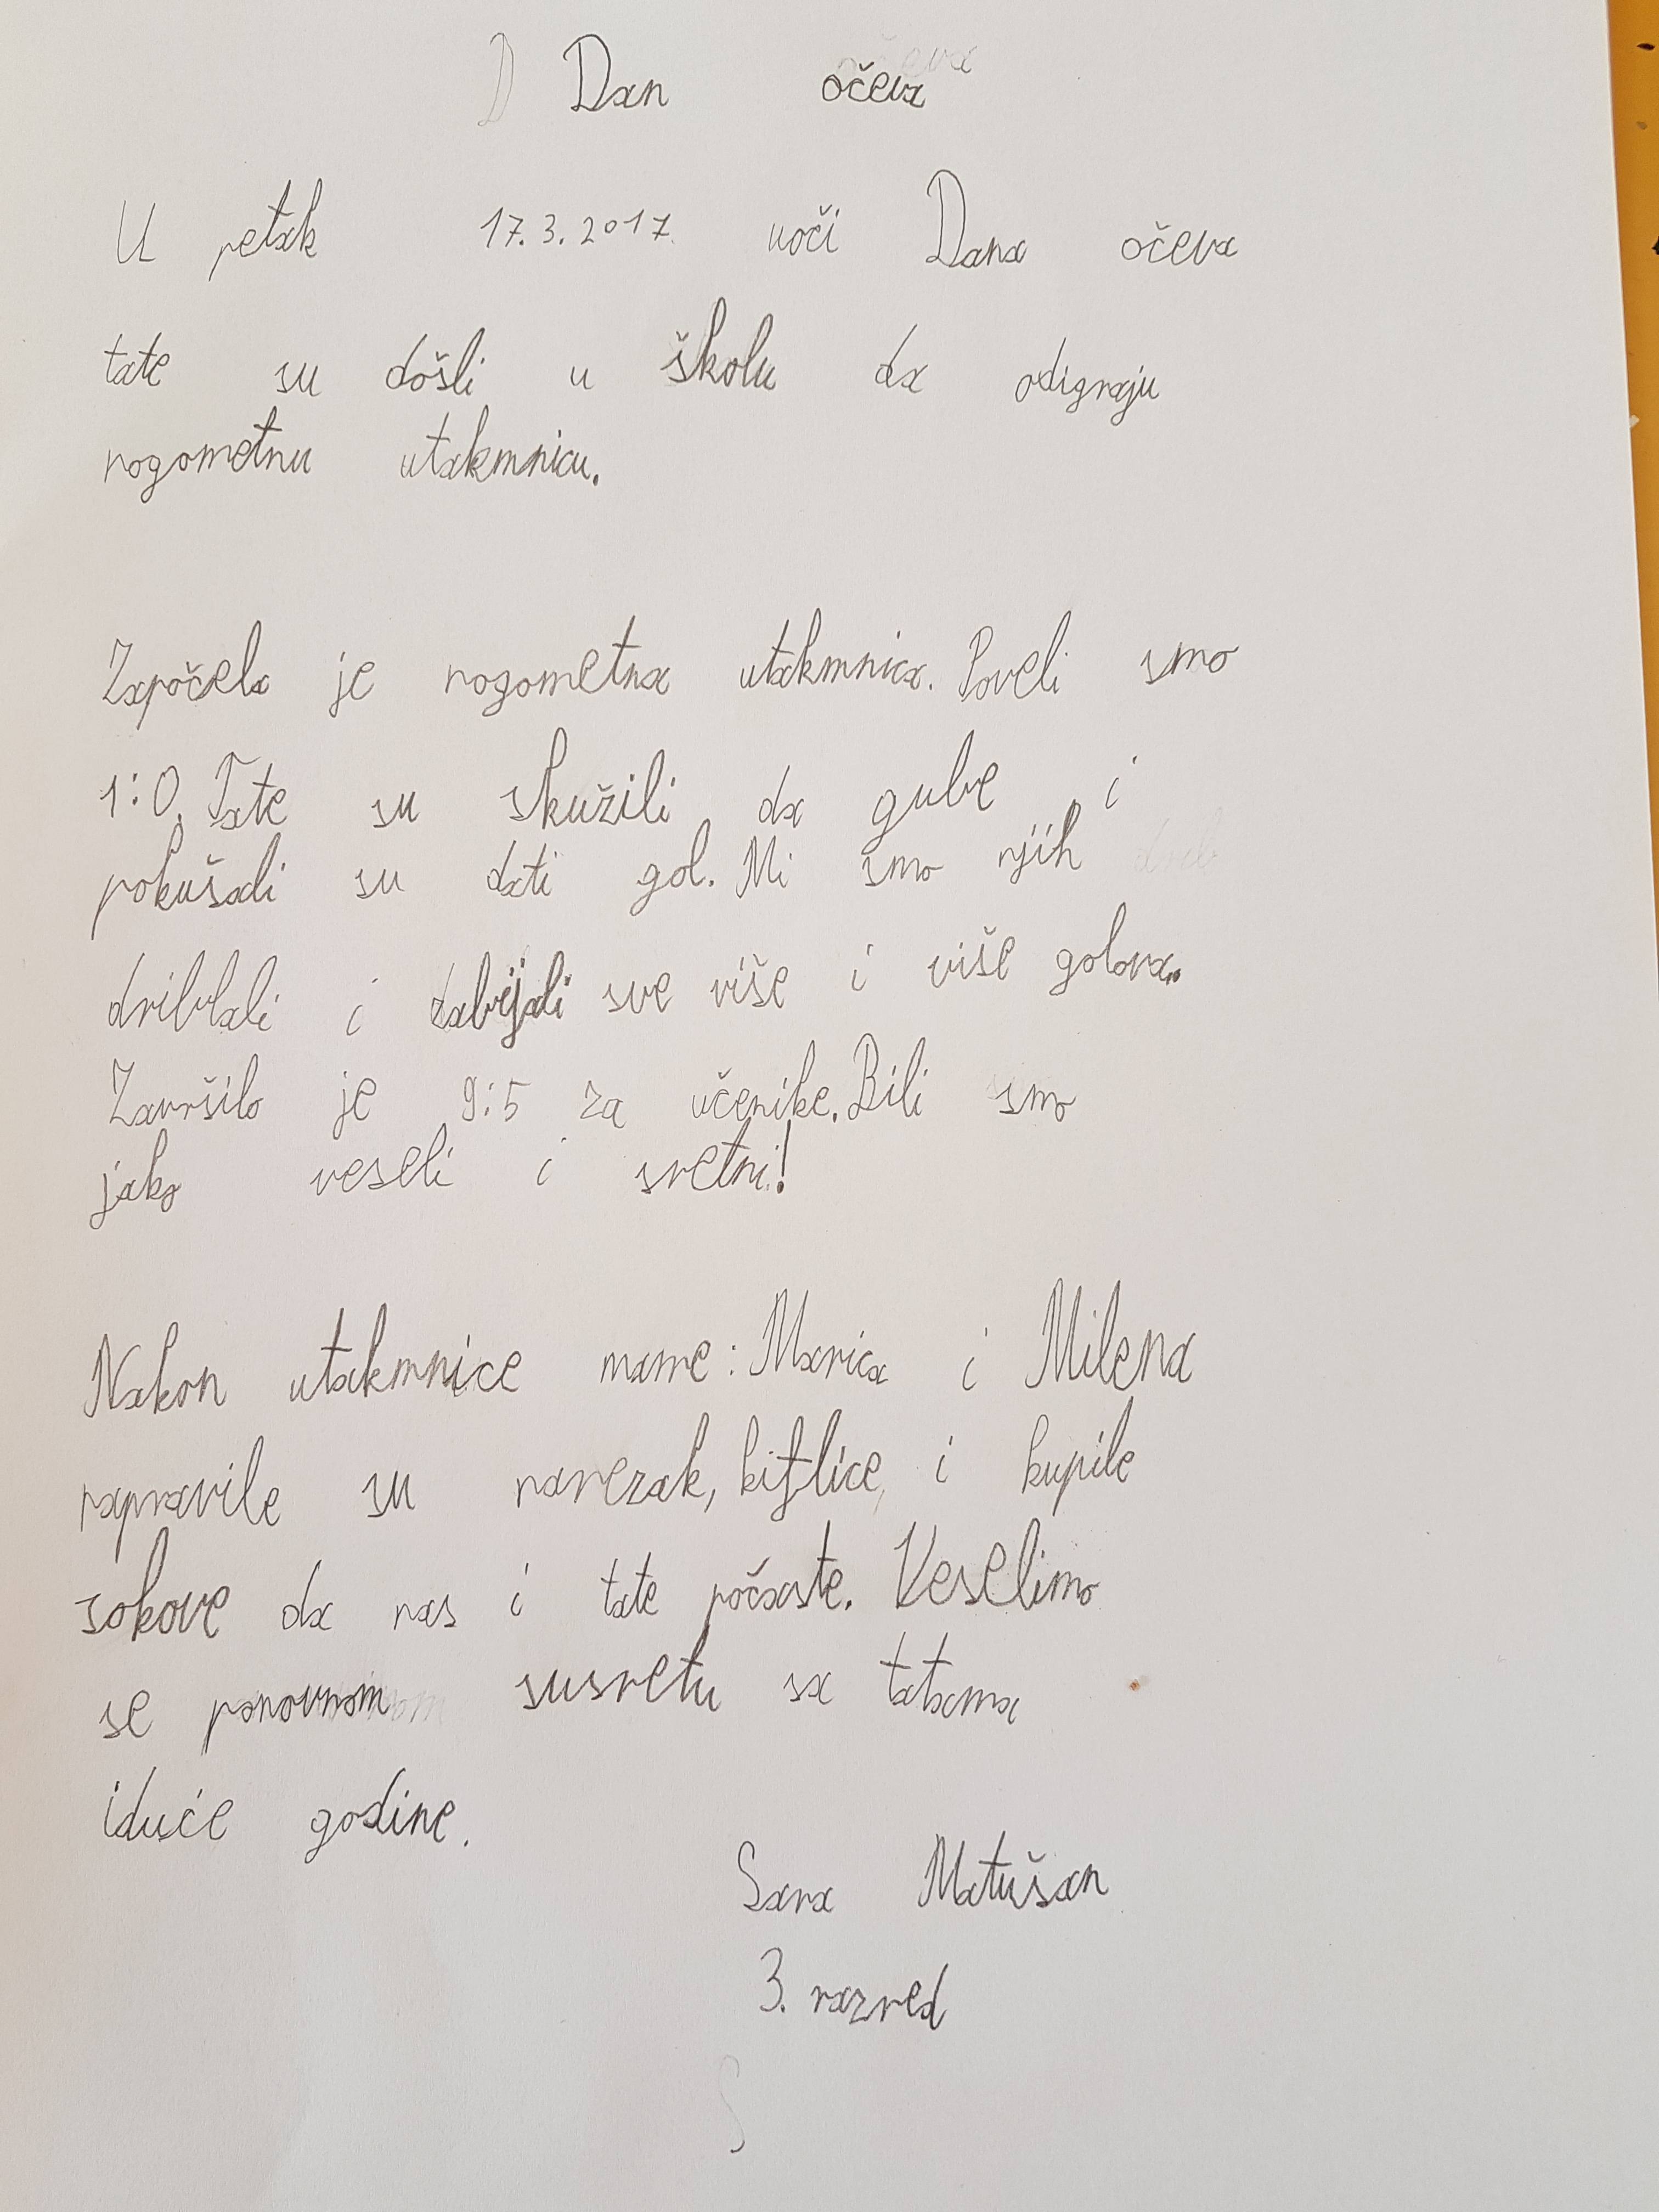 Dan očeva
U petak 17.3.2017. uoči Dana očeva
tate su došli u školu da odigraju
nogometnu utakmnicu.
Započela je nogometna utakmnica. Poveli smo
1:0. Tate su skužili da gube i
pokušali su dati gol. Mi smo njih
driblali i zabijali sve više i više golova.
Završilo je 9:5 za učenike. Bili smo
jako veseli i sretni!
Nakon utakmnice mame: Marica i Milena
napravile su narezak, kiflice, i kupile
sokove da nas i tate počaste. Veselimo
se ponovnom susretu sa tatama
iduće godine.
Sara Matušan
3. razred